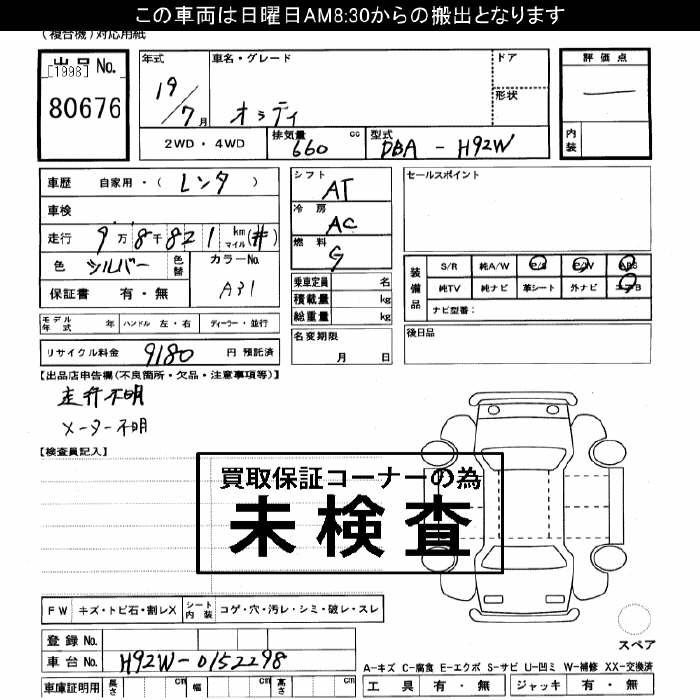 この車両は日曜日AM8:30からの搬出となります
(複合機)対応用紙
出品No.
[1998]
80676
年式
19/7月
車名・グレード
オッティ
ドア
形状
評価点
内装
2WD・4WD
排気量 660 cc
型式 DBA-H92W
車歴 自家用・(レンタ)
車検
走行 9万8千821 km マイル(#)
色 シルバー 色替
カラーNo. A31
保証書 有・無
シフト AT
冷房 AC
燃料 G
乗車定員 名
積載量 kg
総重量 kg
セールスポイント
装備品
S/R 純A/W P/S P/W ABS
純TV 純ナビ 革シート 外ナビ エアB
ナビ型番:
モデル年式 年 ハンドル 左・右 ディーラー・並行
名変期限 月 日
後日品
リサイクル料金 9180 円 預託済
【出品店申告欄(不良箇所・欠品・注意事項等)】
走行不明
メーター不明
【検査員記入】
買取保証コーナーの為
未検査
FW キズ・トビ石・割レX シート内装 コゲ・穴・汚レ・シミ・破レ・スレ
スペア
登録No.
車台No. H92W-0152298
A-キズ C-腐食 E-エクボ S-サビ U-凹ミ W-補修 XX-交換済
車庫証明用 長さ cm 幅 cm 高さ cm
工具 有・無 ジャッキ 有・無